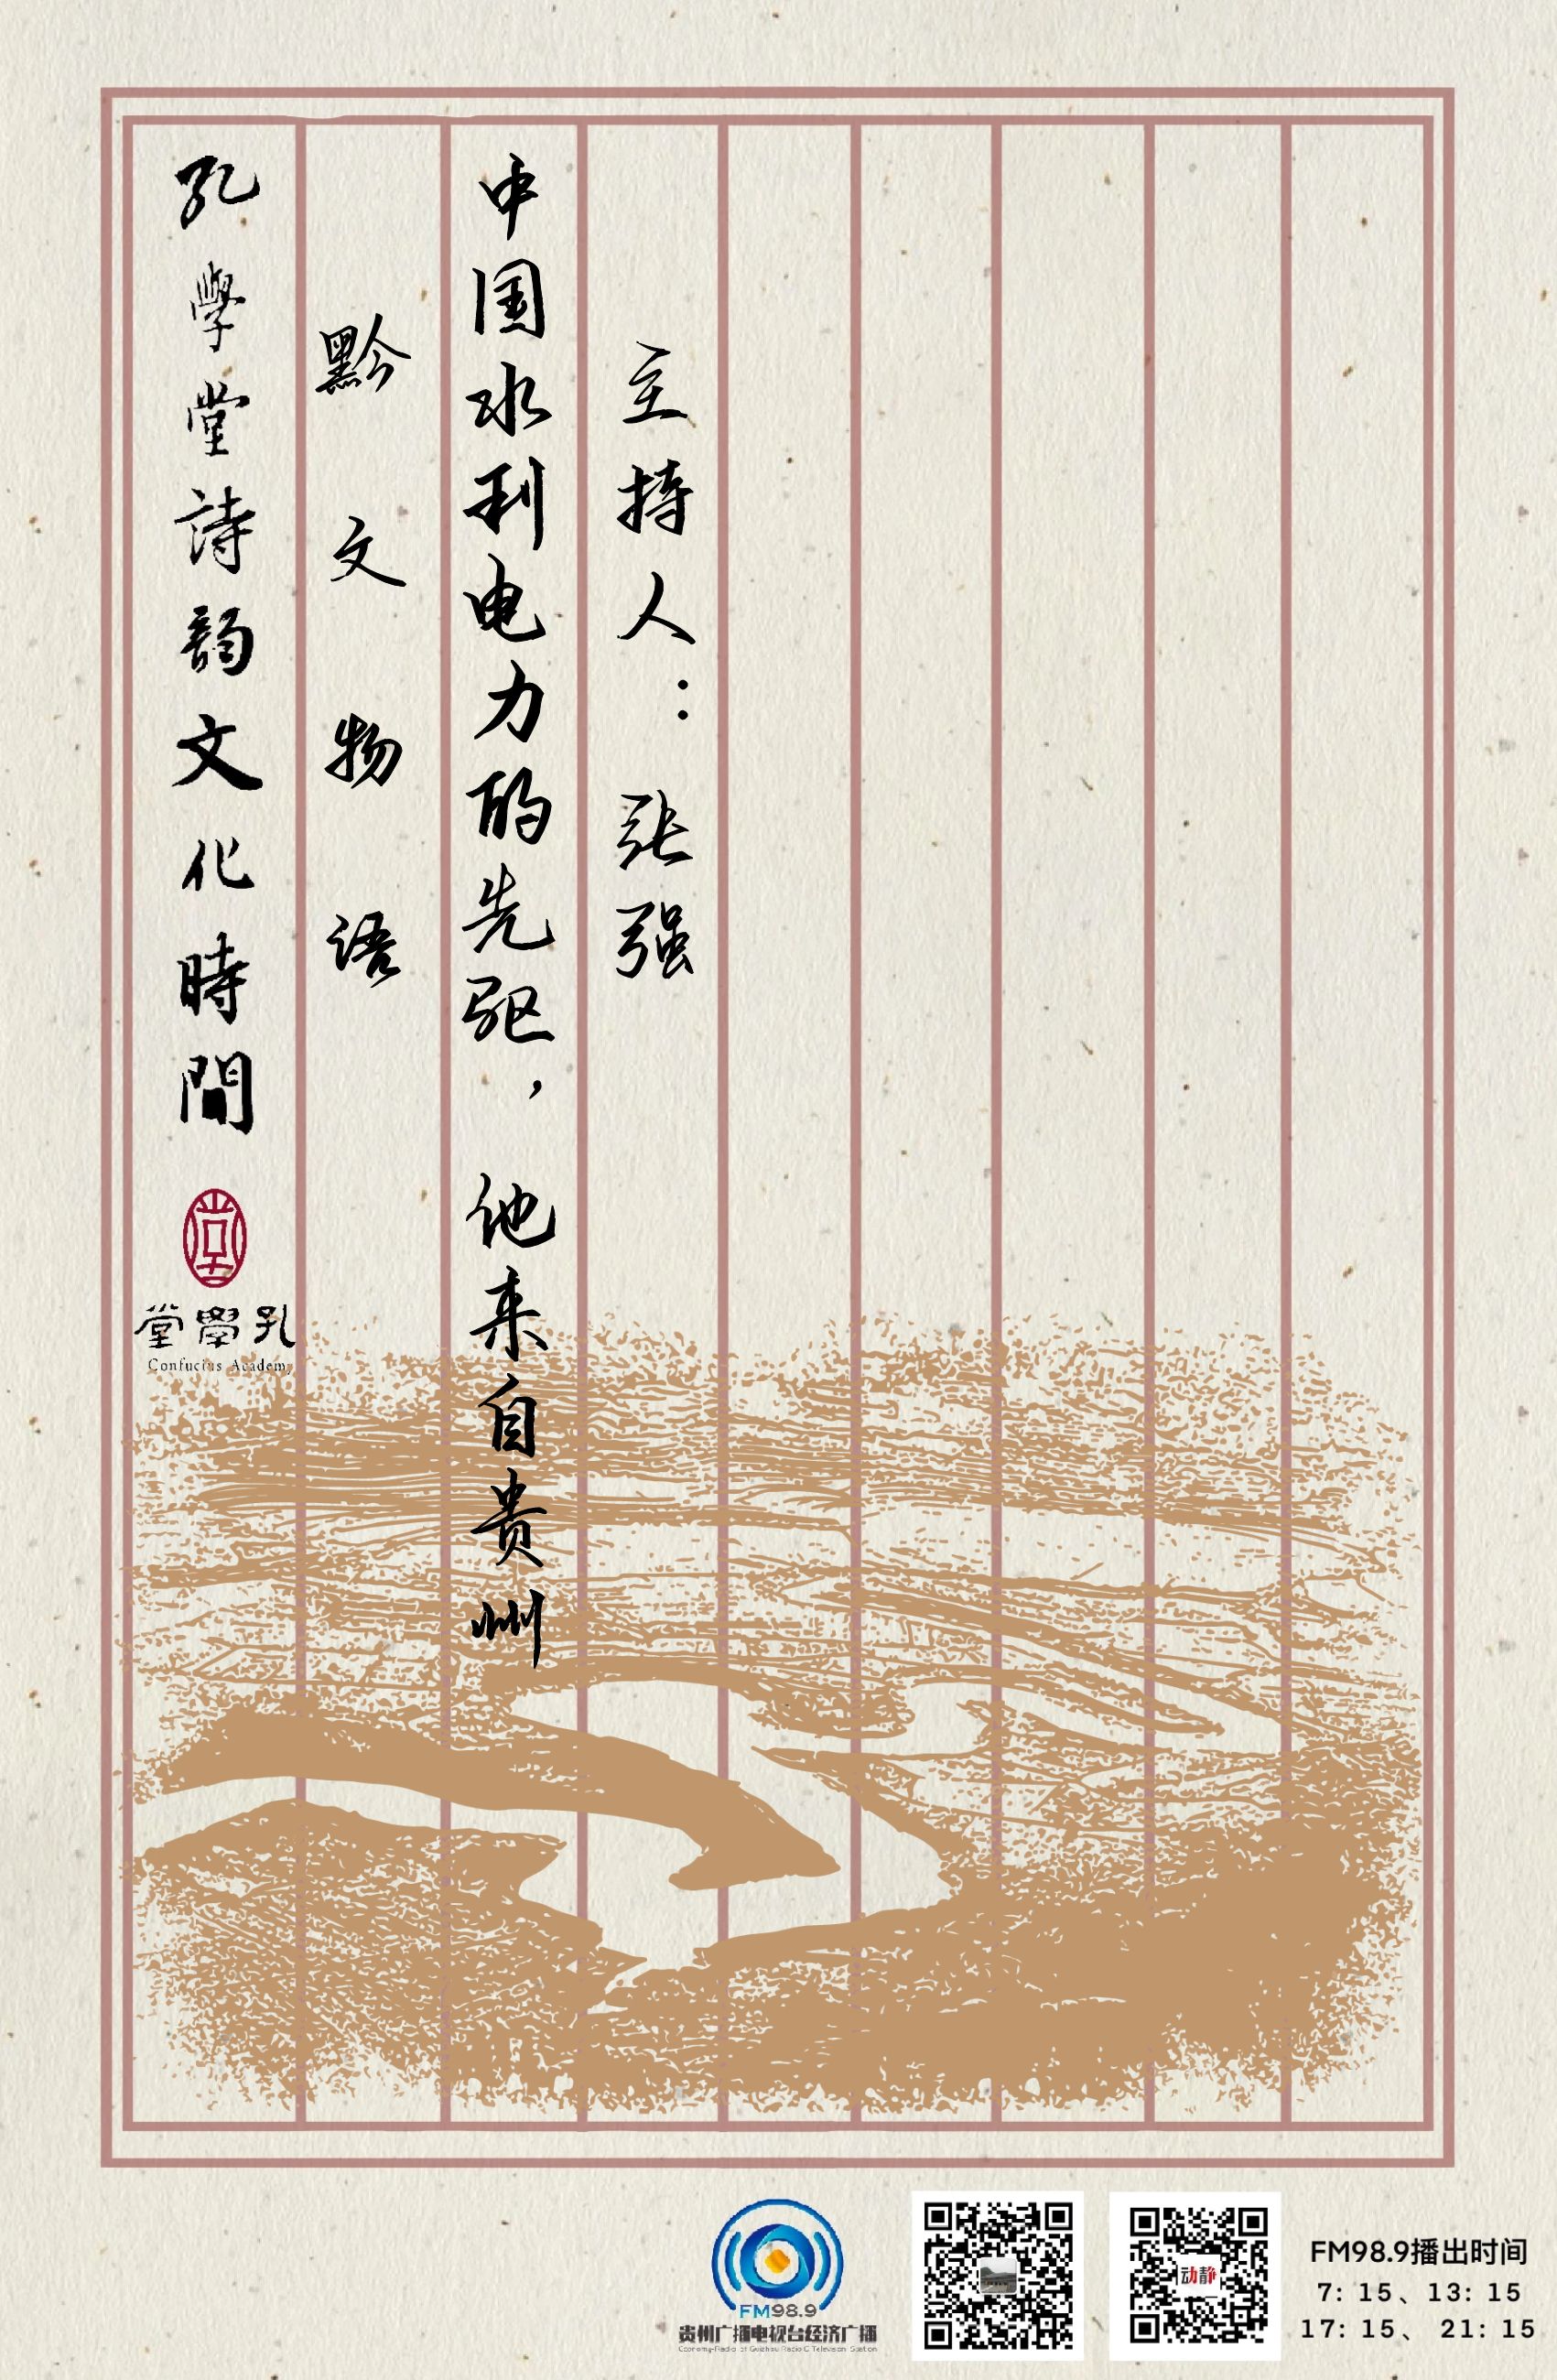 孔學堂詩韵文化時間
堂學孔
Confucius Academy
黔文物语
中国水利电力的先驱，他来自贵州
主持人：张强
FM98.9
贵州广播电视台经济广播
动静
FM98.9播出时间
7: 15、13: 15
17: 15、 21: 15